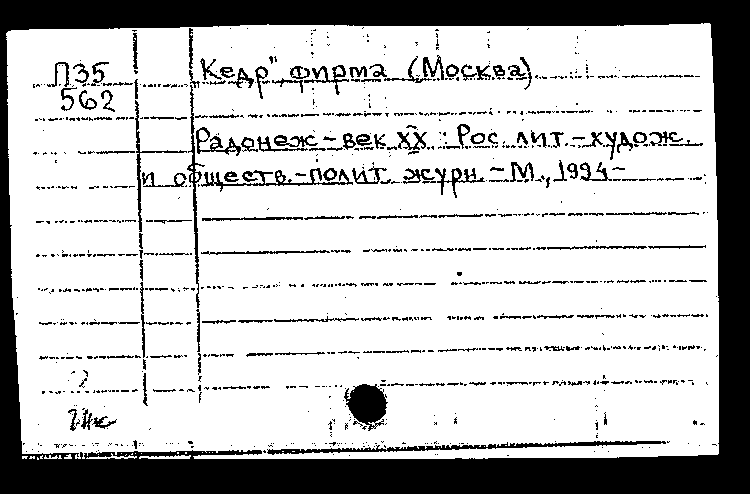 П35 "Кедр", фирма (Москва)
562
Радонеж - век XX : Рос. лит.-худож.
и обществ.-полит. журн. - М., 1994-